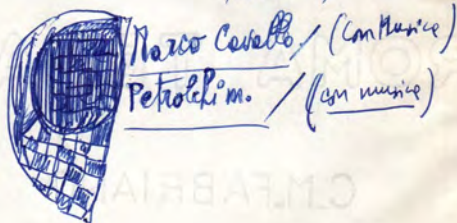 Marco Cavallo / (con Musica)
Petrolchim. / (con musica)
C.M.FABRIA